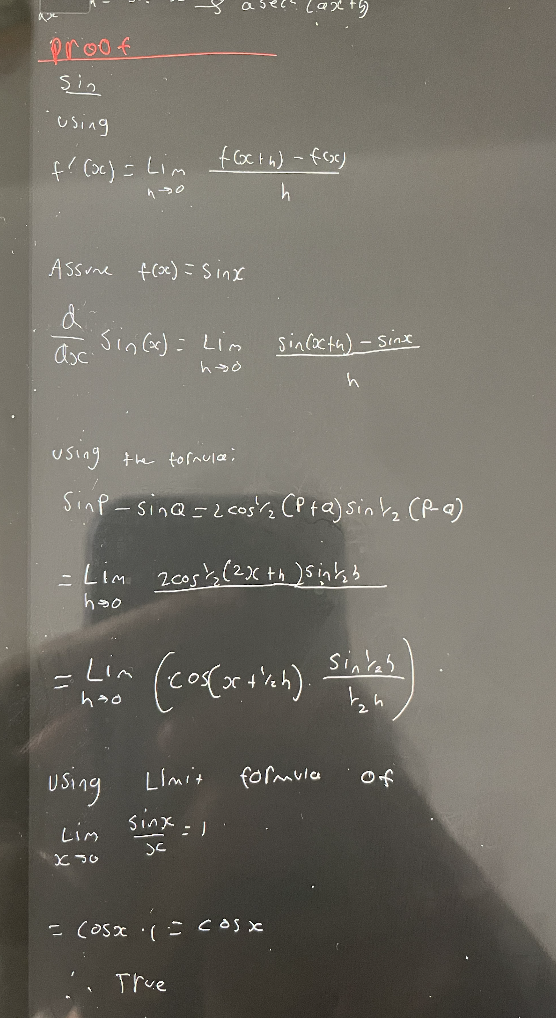 a sec² (ax+b)
Proof
Sin
using
f'(x) = Lim h→0 f(x+h) - f(x) / h
Assume f(x) = Sinx
d/dx Sin(x) = Lim h→0 sin(x+h) - sinx / h
using the formula:
SinP - sinQ = 2cos½(P+Q)sin½(P-Q)
= Lim h→0 2cos½(2x+h)sin½h
= Lim h→0 (cos(x+½h) · Sin½h / ½h)
using Limit formula of
Lim x→0 sinx/x = 1
= cosx · 1 = cosx
∴ True